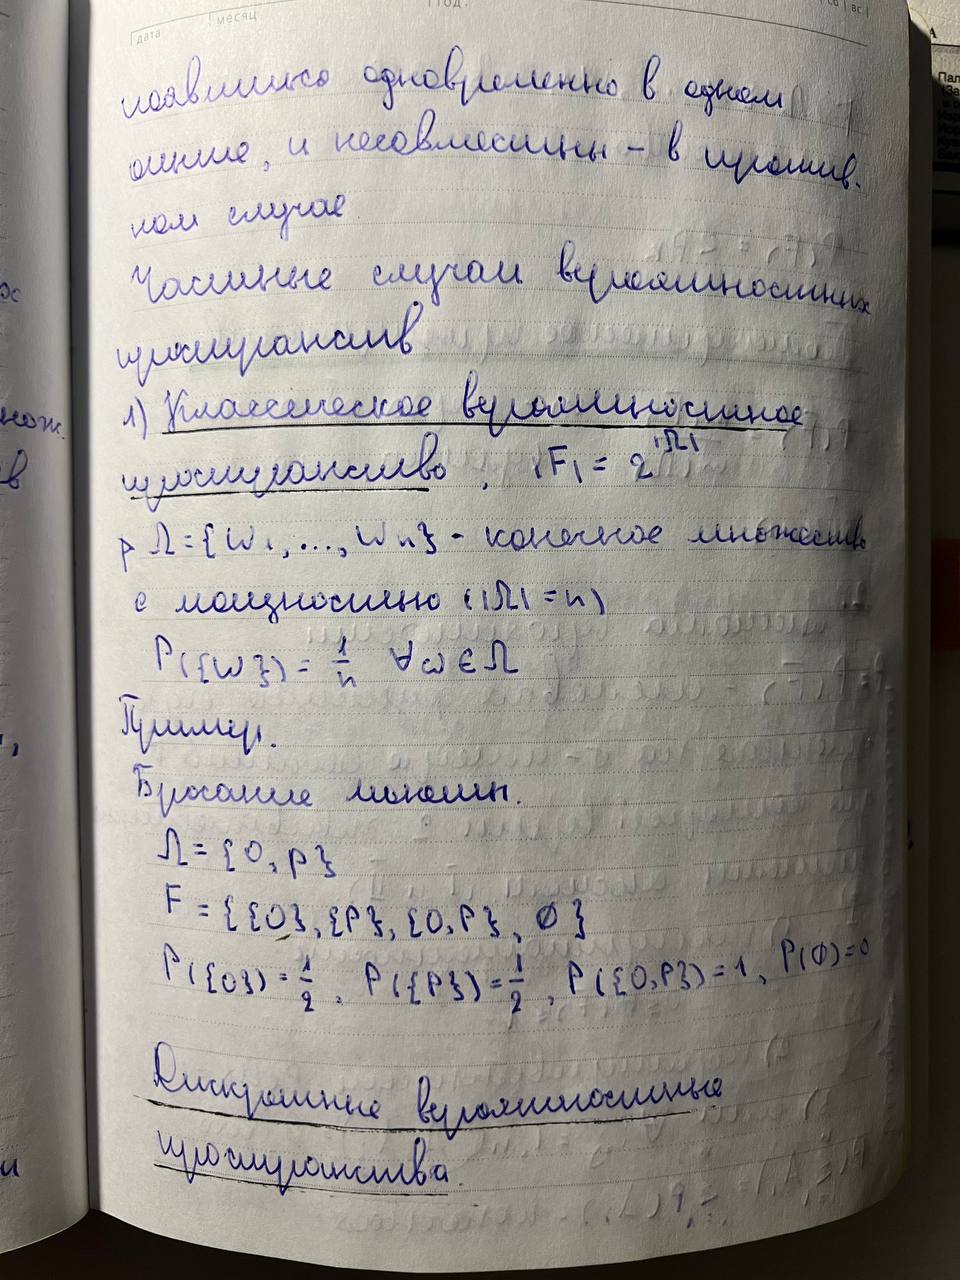 дата
месяц
год.
сб вс
появиться одновременно в одном
опыте, и несовместны - в против.
ном случае
Частные случаи вероятностных
пространств
1) Классическое вероятностное
пространство, |F| = 2^|Ω|
Ω = {w₁, ..., wₙ} - конечное множество
с мощностью (|Ω| = n)
P({w}) = 1/n ∀ω ∈ Ω
Пример.
Бросание монеты.
Ω = {О, Р}
F = {{О}, {Р}, {О, Р}, ∅}
P({О}) = 1/2, P({Р}) = 1/2, P({О, Р}) = 1, P(∅) = 0
Дискретные вероятностные
пространства.